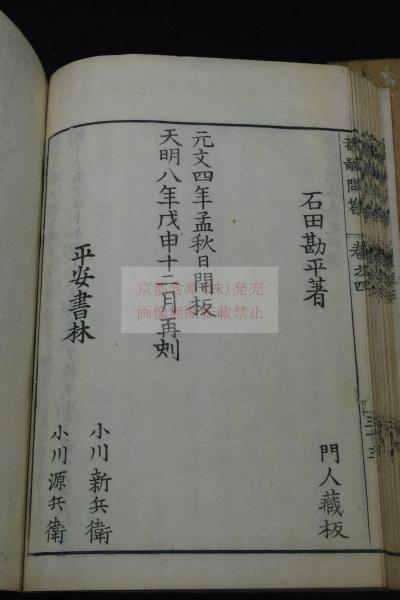 都鄙問答 巻之四
石田勘平著
門人藏板
元文四年孟秋日開板
天明八年戊申十二月再刻
平安書林
小川新兵衛
小川源兵衛
画像無断転載禁止